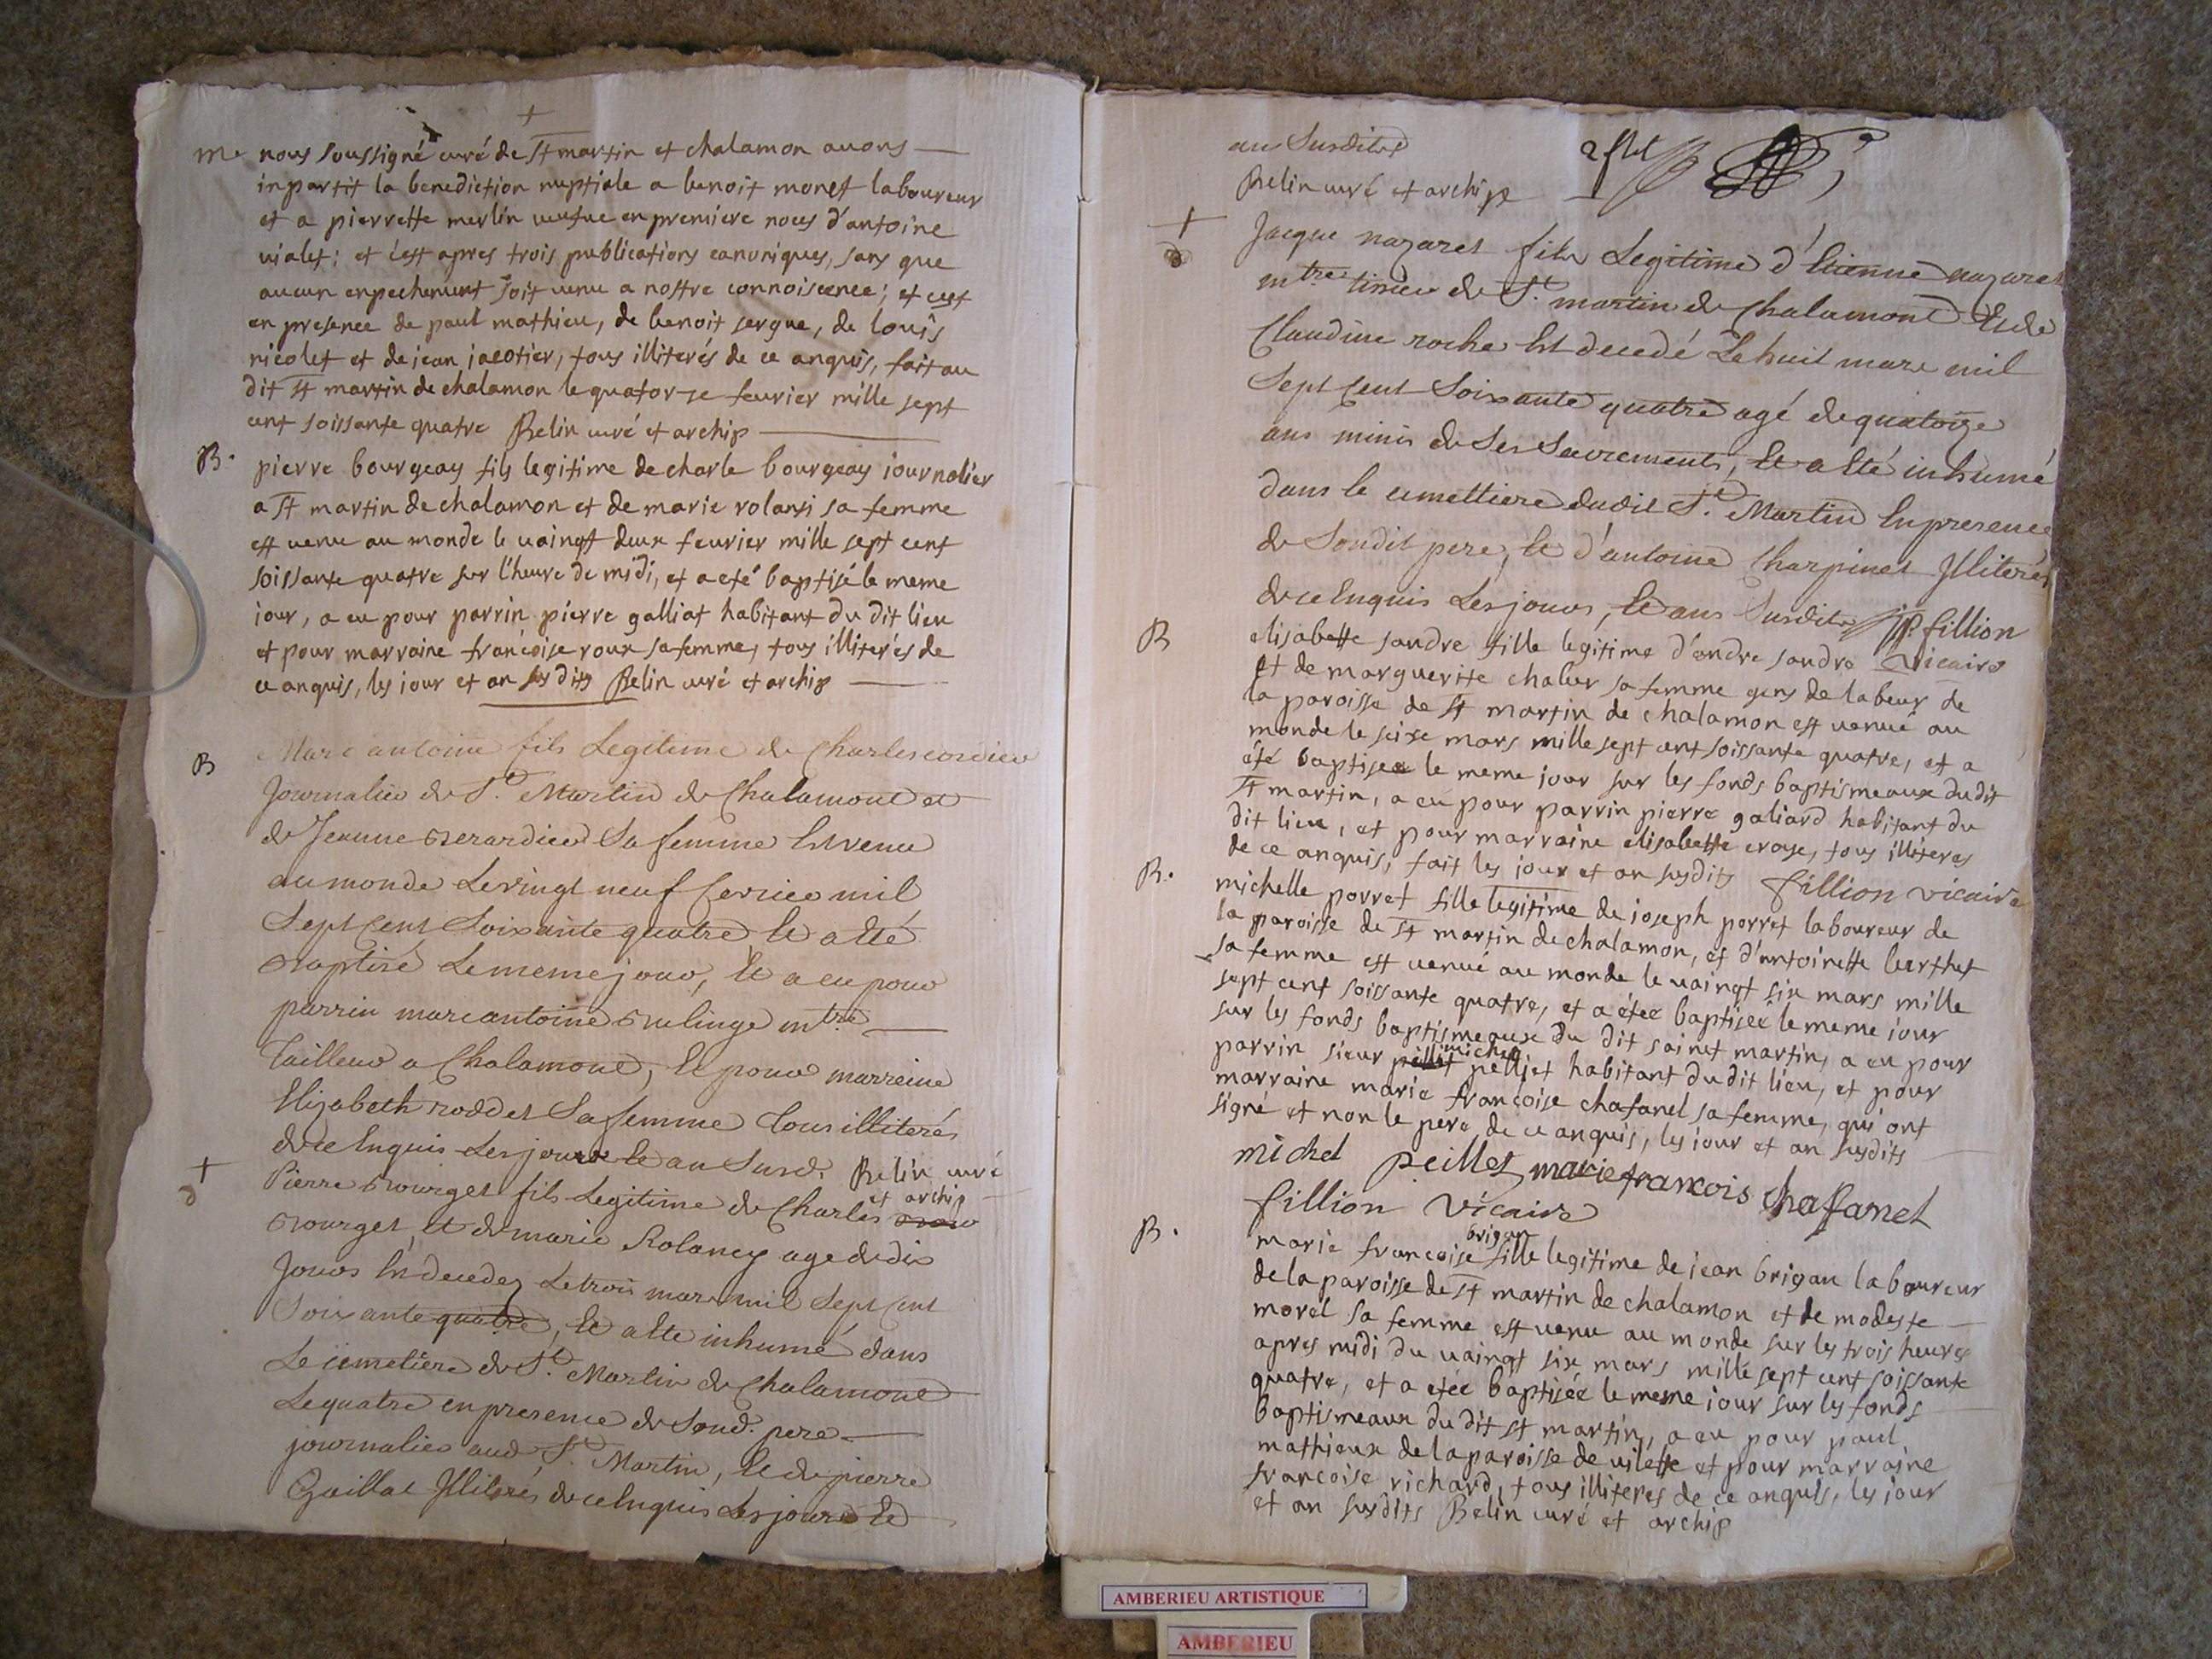 +
m. nous soussigné curé de st martin et chalamon auons
inpartit la benediction nuptiale a benoit monet laboureur
et a pierrette merlin veufue en premiere noces d'antoine
uialet; et c'est apres trois publications canoniques, sans que
aucun enpechement soit uenu a nostre connoiscence; et cest
en presence de paul mathieu, de benoit sergue, de louis
nicolet et de jean jacotier, tous illiterés de ce anquis, fait au
dit st martin de chalamon le quatorze feurier mille sept
cent soissante quatre Belin curé et archip
B. pierre bourgeay fils legitime de charle bourgeay iournalier
a st martin de chalamon et de marie rolansi sa femme
est uenu au monde le uaingt deux feurier mille sept cent
soissante quatre sur l'heure de midi, et a eté baptisé le meme
iour, a eu pour parrin pierre galliat habitant du dit lieu
et pour marraine francoise roux sa femme, tous illiterés de
ce anquis, les jour et an susdits Belin curé et archip
B Marc antoine fils Legitime de Charles cordier
Journalier de St. Martin de Chalamont et
de Jeanne Berardier Sa femme Est venu
au monde Le vingt neuf fevrier mil
Sept Cent Soixante quatre, Et a Eté
Baptisé Le meme jour, Et a eu pour
parrin marc antoine Bulinge mtre
Tailleur a Chalamont, Et pour marreine
Elizabeth roddet Sa femme Tous illiterés
de ce Enquis Les jour Et an Susd. Belin curé
et archip
+
d Pierre Bourget fils Legitime de Charles
Bourget, Et de marie Rolancy age de dix
Jours Est decedez Le trois mars mil Sept Cent
Soixante quatre, Et a Ete inhumé dans
Le cimetiere de St. Martin de Chalamont
Le quatre en presence de Sond. pere
journalier aud. St. Martin, Et de pierre
Gaillat Illiterés de ce Enquis Les jours Et
an Susdits
Belin curé et archip
+
d Jacque nazaret fils Legitime d'Etienne nazaret
mtre de St. martin de Chalamont Et de
Claudine roche Est decedé Le huit mars mil
Sept Cent Soixante quatre agé de quatorze
ans minis de Ses Sacrements, Et a Eté inhumé
dans le cimettiere dudit St. Martin En presence
de Soudit pere, Et d'antoine Charpinet Illiterés
de ce Enquis Les jours, Et ans Susdits JP. fillion
vicaire
B elisabette sandre fille legitime d'andre sandre
et de marguerite chalur sa femme gens de labeur de
la paroisse de st martin de chalamon est uenué au
monde le seize mars mille sept cent soissante quatre, et a
été baptisee le meme jour sur les fonds baptismeaux du dit
st martin, a eu pour parrin pierre galiard habitant du
dit lieu, et pour marraine elisabette craye, tous illiteres
de ce anquis, fait les jour et an susdits fillion vicaire
B. michelle porret fille legitime de joseph porret laboureur de
la paroisse de st martin de chalamon, et d'antoinette berthet
sa femme est uenué au monde le uaingt six mars mille
sept cent soissante quatre, et a étee baptisée le meme iour
sur les fonds baptismeaux du dit sainct martin, a eu pour
michel
parrin sieur pelliet habitant du dit lieu, et pour
marraine marie francoise chafanel sa femme, qui ont
signé et non le pere de ce anquis, les iour et an susdits
michel peillet marie francois Chaffanel
fillion vicaire
brigan
B. marie francoise fille legitime de jean brigan laboureur
de la paroisse de st martin de chalamon et de modeste
morel sa femme est uenu au monde sur les trois heures
apres midi du uaingt six mars mille sept cent soissante
quatre, et a etée baptisée le meme iour sur les fonds
baptismeaux du dit st martin, a eu pour paul
mathieux de la paroisse de uilette et pour marraine
francoise richard, tous illiteres de ce anquis, les jour
et an susdits Belin curé et archip
AMBERIEU ARTISTIQUE
AMBERIEU